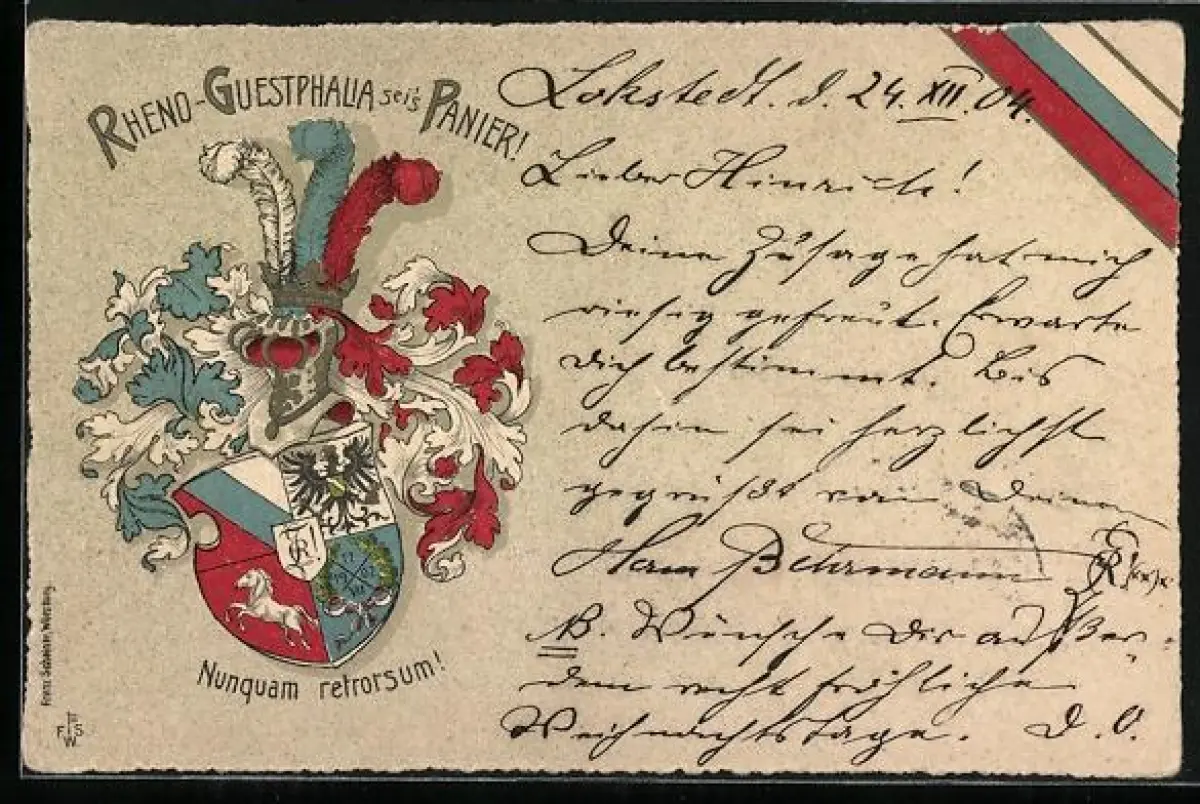 RHENO-GUESTPHALIA sei's PANIER!
Lokstedt. d. 24. XII. 04.
Lieber Hinrich!
Deine Zusage hat mich
riesig gefreut. Erwarte
Dich bestimmt. Bis
dahin sei herzlichst
gegrüßt von Deinem
Hans Behrmann
NB. Wünsche Dir außer-
dem recht fröhliche
Weihnachtstage. D. O.
Nunquam retrorsum!
Franz Scheiner, Würzburg
F S W